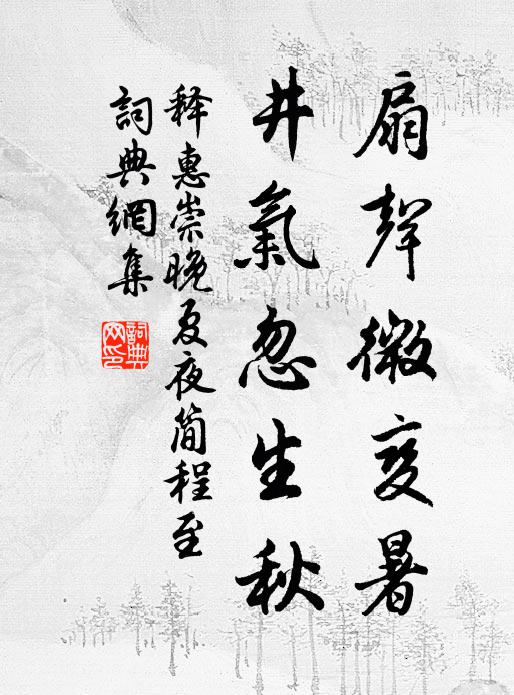 扇聲微变暑
井氣忽生秋
释惠崇晚夏夜简程至
詞典網集
詞典网印